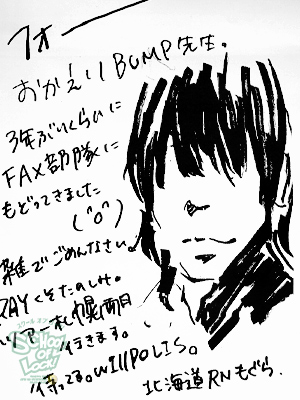 フォー
おかえりBUMP先生.
3年ぶりくらいに
FAX部隊に
もどってきました
(^o^)
雑でごめんなさい。
RAYくそたのしみ。
ツアー札幌両日
行きます。
待ってる。WILLPOLIS。
北海道RNもぐら.
スクール オブ ロック
SCHOOL OF LOCK!